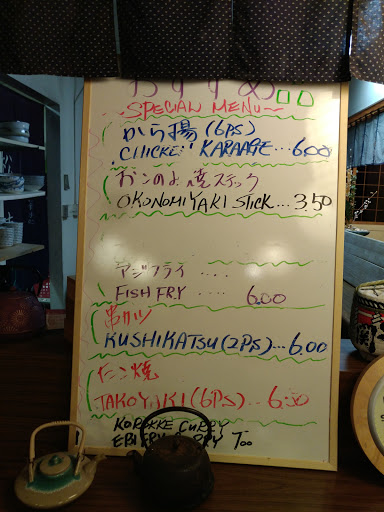 おすすめ
SPECIAL MENU~
から揚(6PS)
CHICKEN KARAAGE...6.00
おこのみ焼スティック
OKONOMIYAKI STICK...3.50
アジフライ ....
FISH FRY ..... 6.00
串カツ
KUSHIKATSU(2PS)...6.00
たこ焼
TAKOYAKI(6PS)...6.50
KOROKKE CURRY
EBI FRY CURRY 7.00